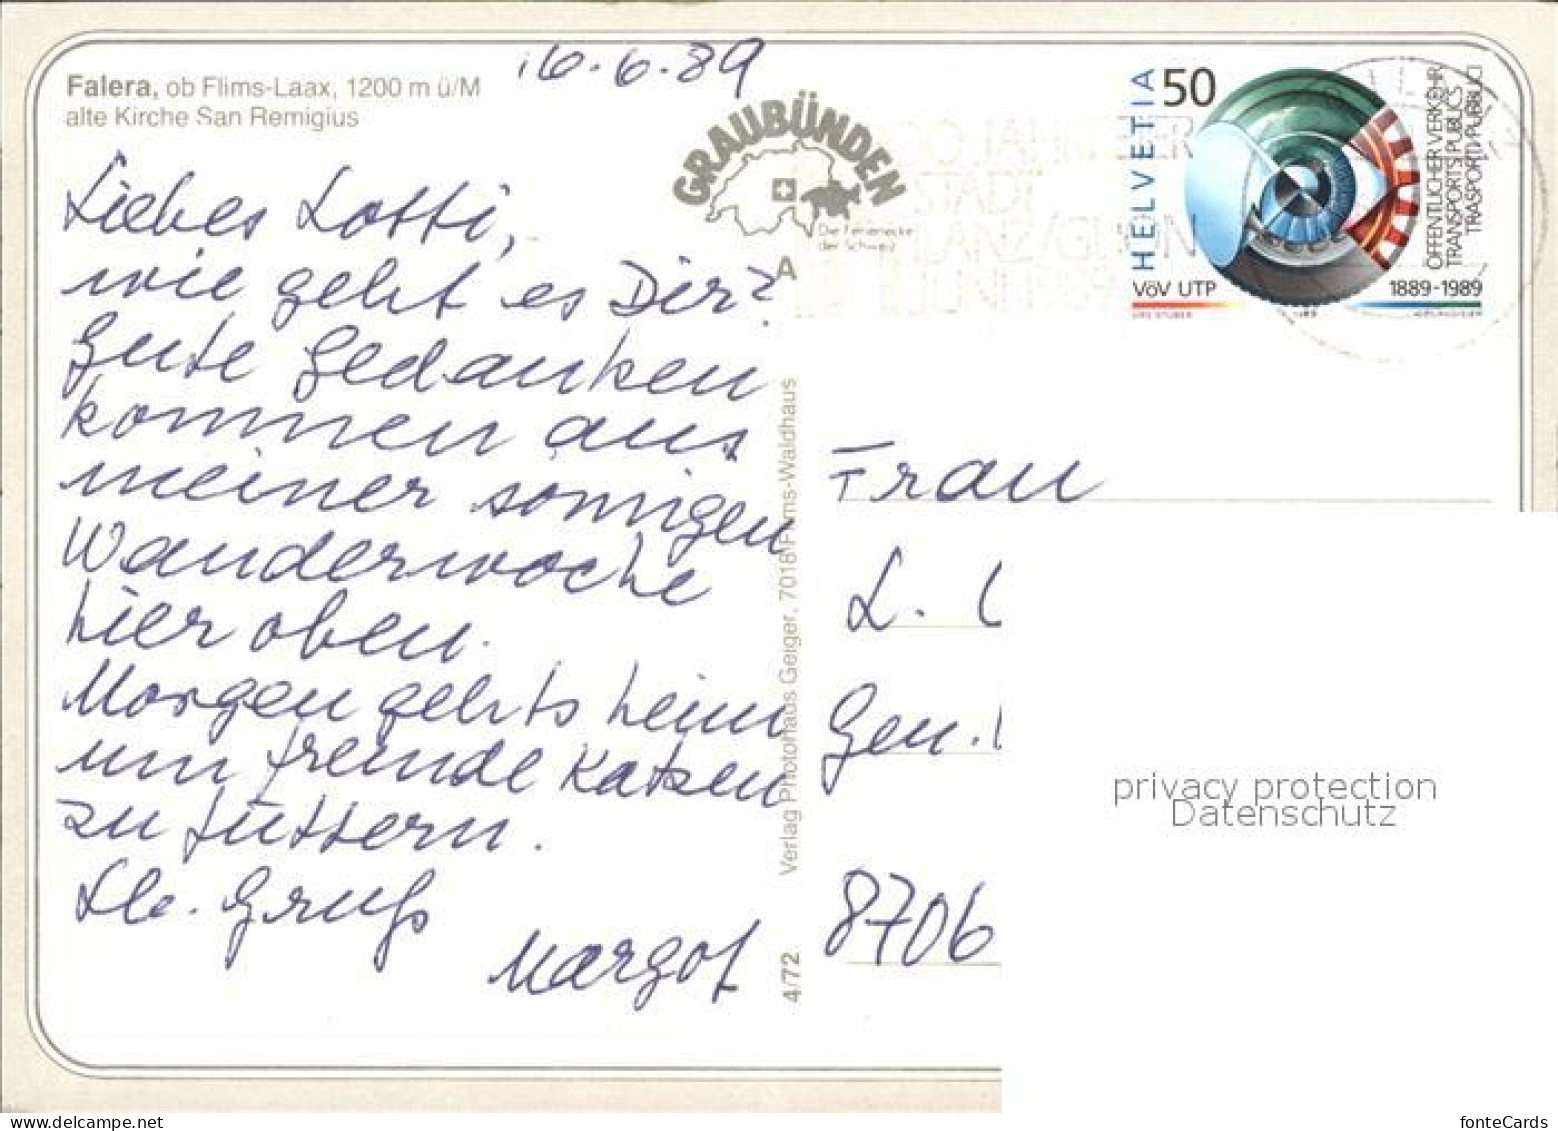 16.6.89
Falera, ob Flims-Laax, 1200 m ü/M
alte Kirche San Remigius
GRAUBÜNDEN
Die Ferienecke
der Schweiz
A
Liebes Lotti,
wie geht es Dir?
Gute Gedanken
kommen aus
meiner sonnigen
Wanderwoche
hier oben.
Morgen gehts heim
um fremde Katzen
zu füttern.
Lb. Gruß
Margot
Verlag Photohaus Geiger, 7018 Flims-Waldhaus
4/72
HELVETIA
50
ÖFFENTLICHER VERKEHR
TRANSPORTS PUBLICS
TRASPORTI PUBBLICI
VöV UTP
1889-1989
700 JAHRE
STADT
ILANZ/GLION
Frau
L.
Gen.
8706
privacy protection
Datenschutz
fonteCards